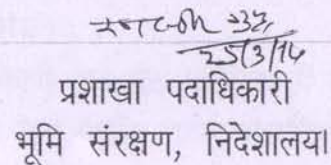 25/3/14
प्रशाखा पदाधिकारी
भूमि संरक्षण, निदेशालय।